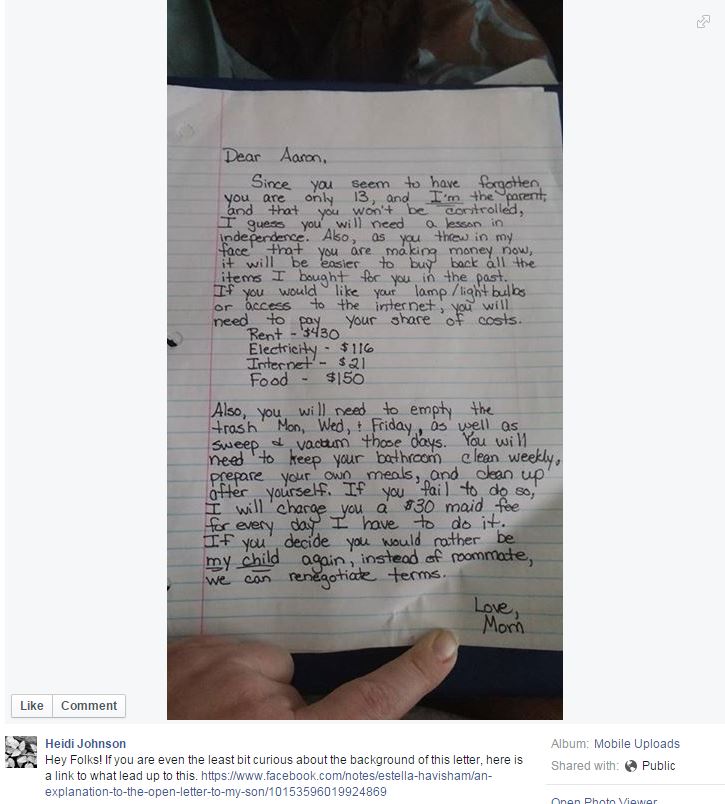 Dear Aaron,
Since you seem to have forgotten
you are only 13, and I'm the parent,
and that you won't be controlled,
I guess you will need a lesson in
independence. Also, as you threw in my
face that you are making money now,
it will be easier to buy back all the
items I bought for you in the past.
If you would like your lamp/light bulbs
or access to the internet, you will
need to pay your share of costs.
Rent - $430
Electricity - $116
Internet - $21
Food - $150
Also, you will need to empty the
trash Mon, Wed, & Friday, as well as
sweep & vacuum those days. You will
need to keep your bathroom clean weekly,
prepare your own meals, and clean up
after yourself. If you fail to do so,
I will charge you a $30 maid fee
for every day I have to do it.
If you decide you would rather be
my child again, instead of roommate,
we can renegotiate terms.
Love,
Mom
Like Comment
Heidi Johnson
Hey Folks! If you are even the least bit curious about the background of this letter, here is
a link to what lead up to this. https://www.facebook.com/notes/estella-havisham/an-
explanation-to-the-open-letter-to-my-son/10153596019924869
Album: Mobile Uploads
Shared with: Public
Open Photo Viewer